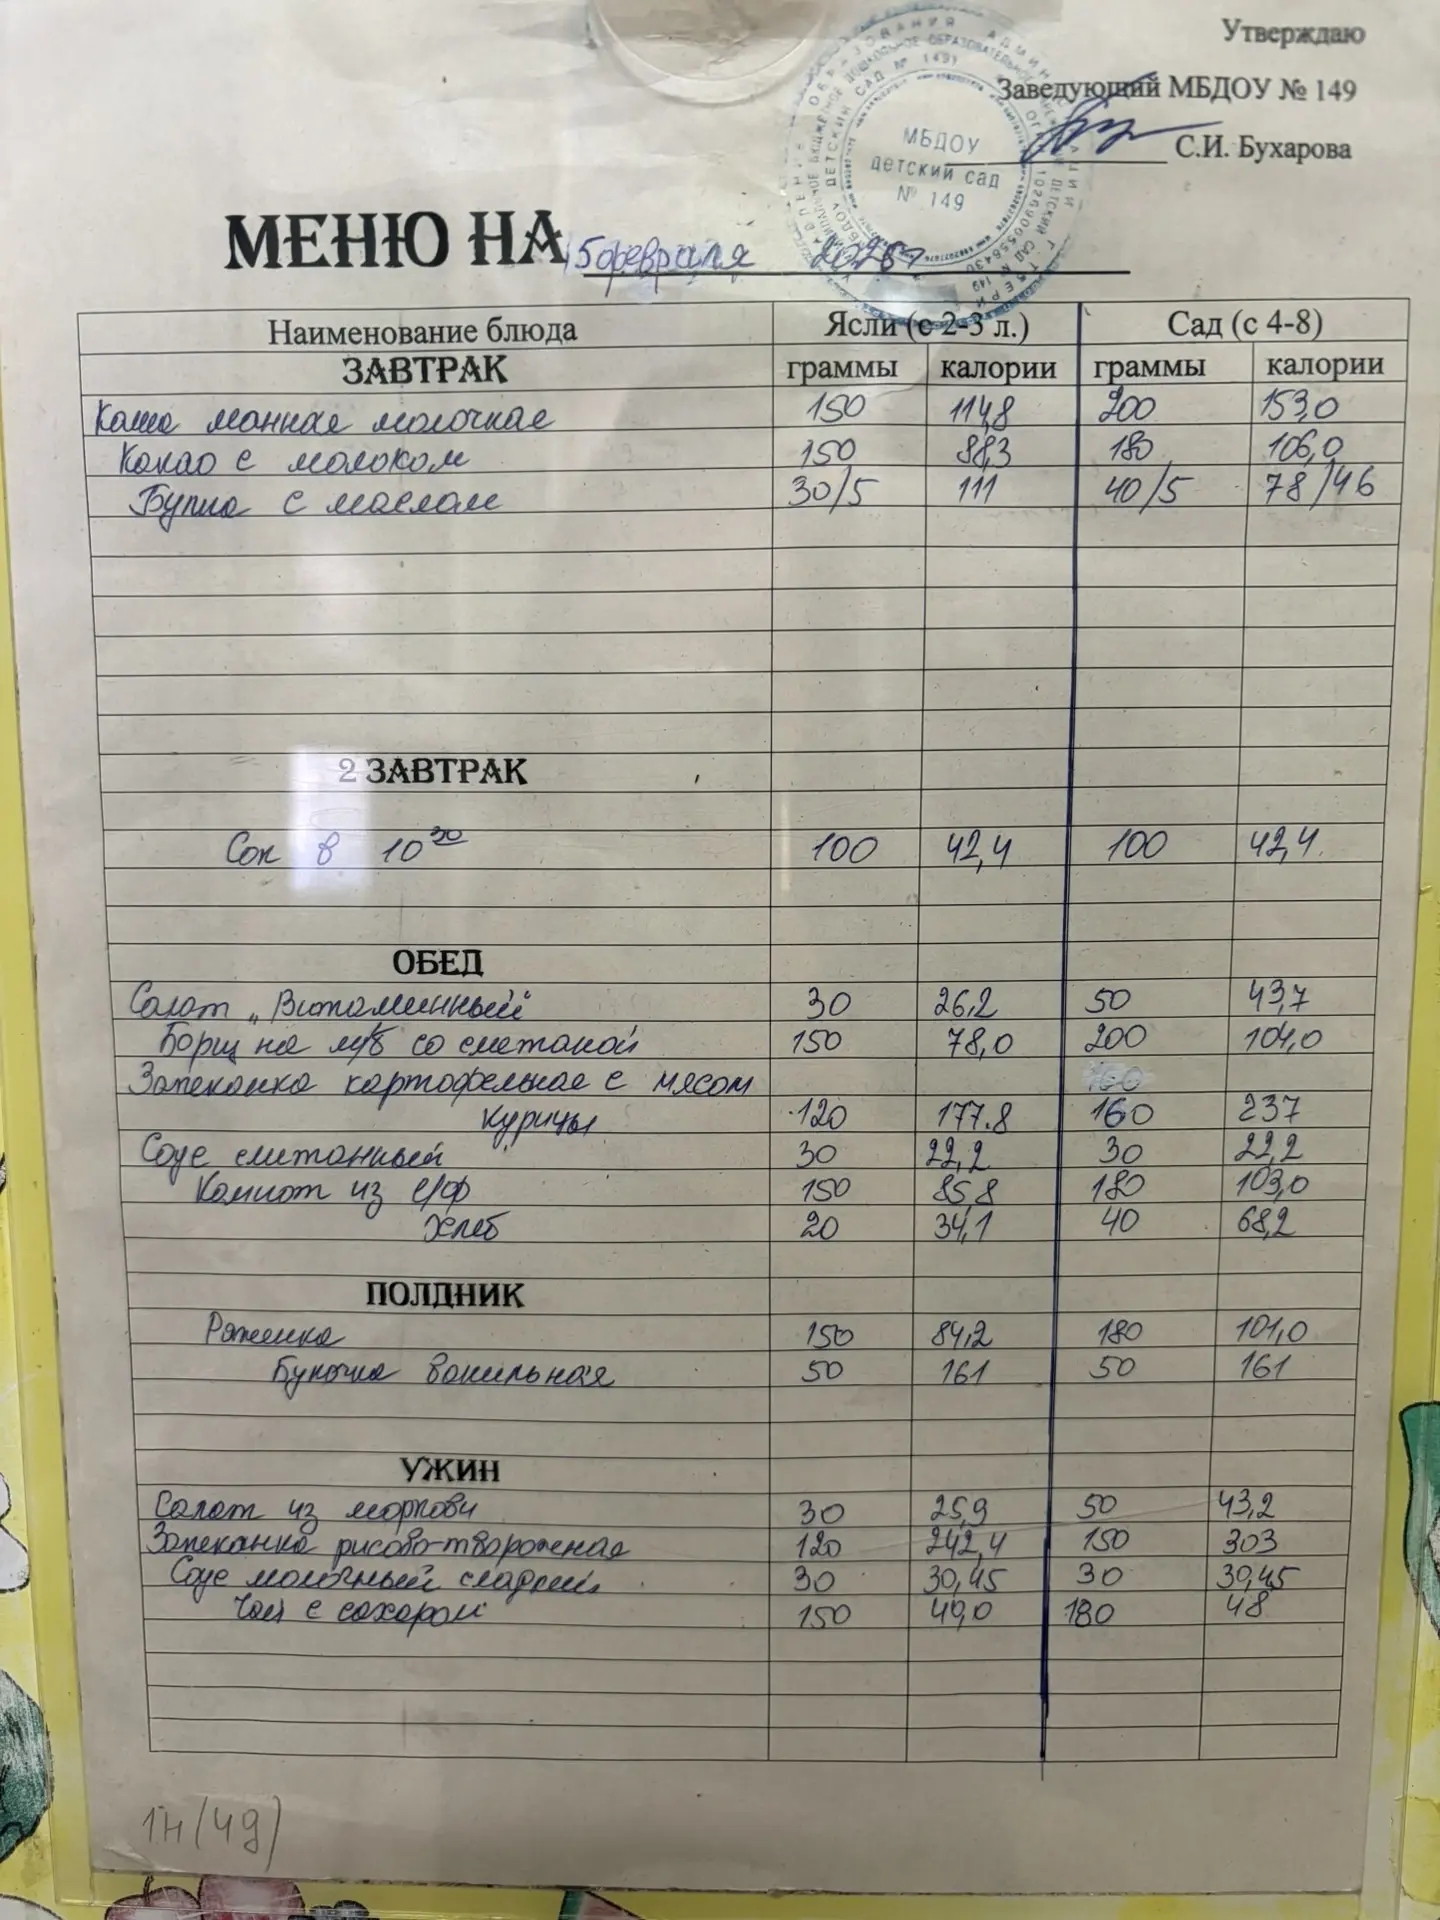 Утверждаю
Заведующий МБДОУ № 149
С.И. Бухарова
МБДОУ
детский сад
№ 149
МЕНЮ НА 5 февраля
Наименование блюда Ясли (с 2-3 л.) Сад (с 4-8)
ЗАВТРАК граммы калории граммы калории
Каша манная молочная 150 114,8 200 153,0
Какао с молоком 150 88,3 180 106,0
Булка с маслом 30/5 111 40/5 78/46
2 ЗАВТРАК
Сок в 10 30 100 42,4 100 42,4.
ОБЕД
Салат „Витаминный" 30 26,2 50 43,7
Борщ на м/б со сметаной 150 78,0 200 104,0
Запеканка картофельная с мясом 160
курицы 120 177.8 160 237
Соус сметанный 30 22,2 30 22,2
Компот из с/ф 150 85,8 180 103,0
Хлеб 20 34,1 40 68,2
ПОЛДНИК
Ряженка 150 84,2 180 101,0
Булочка ванильная 50 161 50 161
УЖИН
Салат из моркови 30 25,9 50 43,2
Запеканка рисово-творожная 120 242,4 150 303
Соус молочный сладкий 30 30,45 30 30,45
Чай с сахаром 150 40,0 180 48
1н/4д)